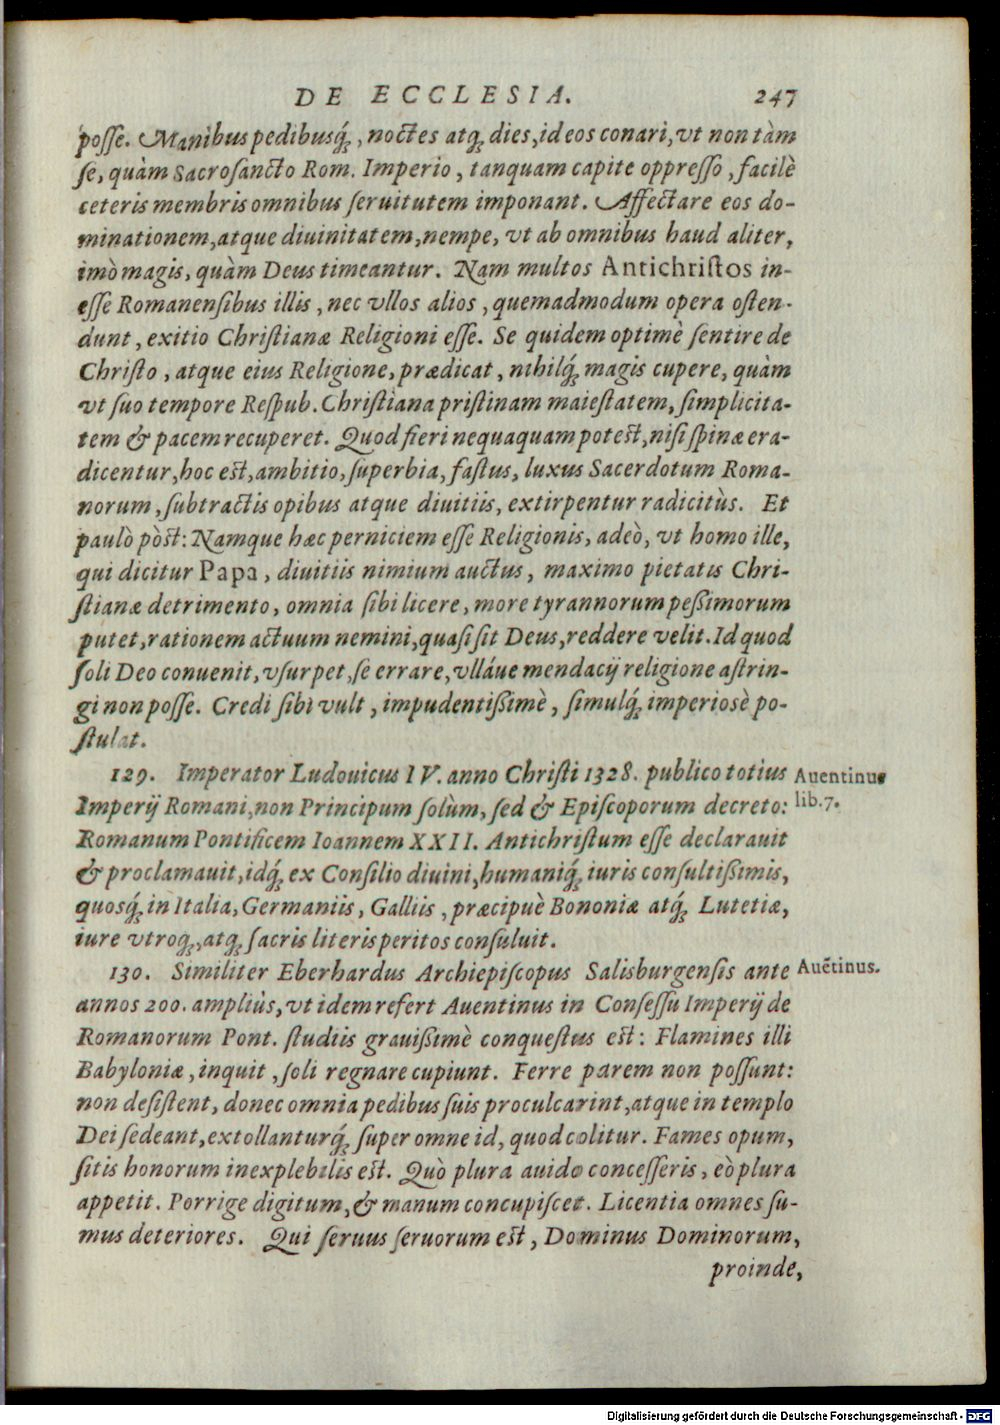 DE ECCLESIA. 247
posse. Manibus pedibusq́;, noctes atq; dies, id eos conari, vt non tàm
se, quàm Sacrosancto Rom. Imperio, tanquam capite oppresso, facilè
ceteris membris omnibus seruitutem imponant. Affectare eos do-
minationem, atque diuinitatem, nempe, vt ab omnibus haud aliter,
imò magis, quàm Deus timeantur. Nam multos Antichristos in-
esse Romanensibus illis, nec vllos alios, quemadmodum opera osten-
dunt, exitio Christianæ Religioni esse. Se quidem optimè sentire de
Christo, atque eius Religione, prædicat, nihilq́; magis cupere, quàm
vt suo tempore Respub. Christiana pristinam maiestatem, simplicita-
tem & pacem recuperet. Quod fieri nequaquam potest, nisi spinæ era-
dicentur, hoc est, ambitio, superbia, fastus, luxus Sacerdotum Roma-
norum, subtractis opibus atque diuitiis, extirpentur radicitùs. Et
paulò pòst: Namque hæc perniciem esse Religionis, adeò, vt homo ille,
qui dicitur Papa, diuitiis nimium auctus, maximo pietatis Chri-
stianæ detrimento, omnia sibi licere, more tyrannorum peßimorum
putet, rationem actuum nemini, quasi sit Deus, reddere velit. Id quod
soli Deo conuenit, vsurpet, se errare, vlláue mendacij religione astrin-
gi non posse. Credi sibi vult, impudentißimè, simulq́; imperiosè po-
stulat.
129. Imperator Ludouicus IV. anno Christi 1328. publico totius Auentinus
Imperij Romani, non Principum solùm, sed & Episcoporum decreto: lib.7.
Romanum Pontificem Ioannem XXII. Antichristum esse declarauit
& proclamauit, idq́; ex Consilio diuini, humaniq́; iuris consultißimis,
quosq́; in Italia, Germaniis, Galliis, præcipuè Bononiæ atq́; Lutetiæ,
iure vtroq;, atq; sacris literis peritos consuluit.
130. Similiter Eberhardus Archiepiscopus Salisburgensis ante Auẽtinus.
annos 200. ampliùs, vt idem refert Auentinus in Consessu Imperij de
Romanorum Pont. studiis grauißimè conquestus est: Flamines illi
Babyloniæ, inquit, soli regnare cupiunt. Ferre parem non possunt:
non desistent, donec omnia pedibus suis proculcarint, atque in templo
Dei sedeant, extollanturq́; super omne id, quod colitur. Fames opum,
sitis honorum inexplebilis est. Quò plura auido concesseris, eò plura
appetit. Porrige digitum, & manum concupiscet. Licentia omnes su-
mus deteriores. Qui seruus seruorum est, Dominus Dominorum,
proinde,
Digitalisierung gefördert durch die Deutsche Forschungsgemeinschaft - DFG